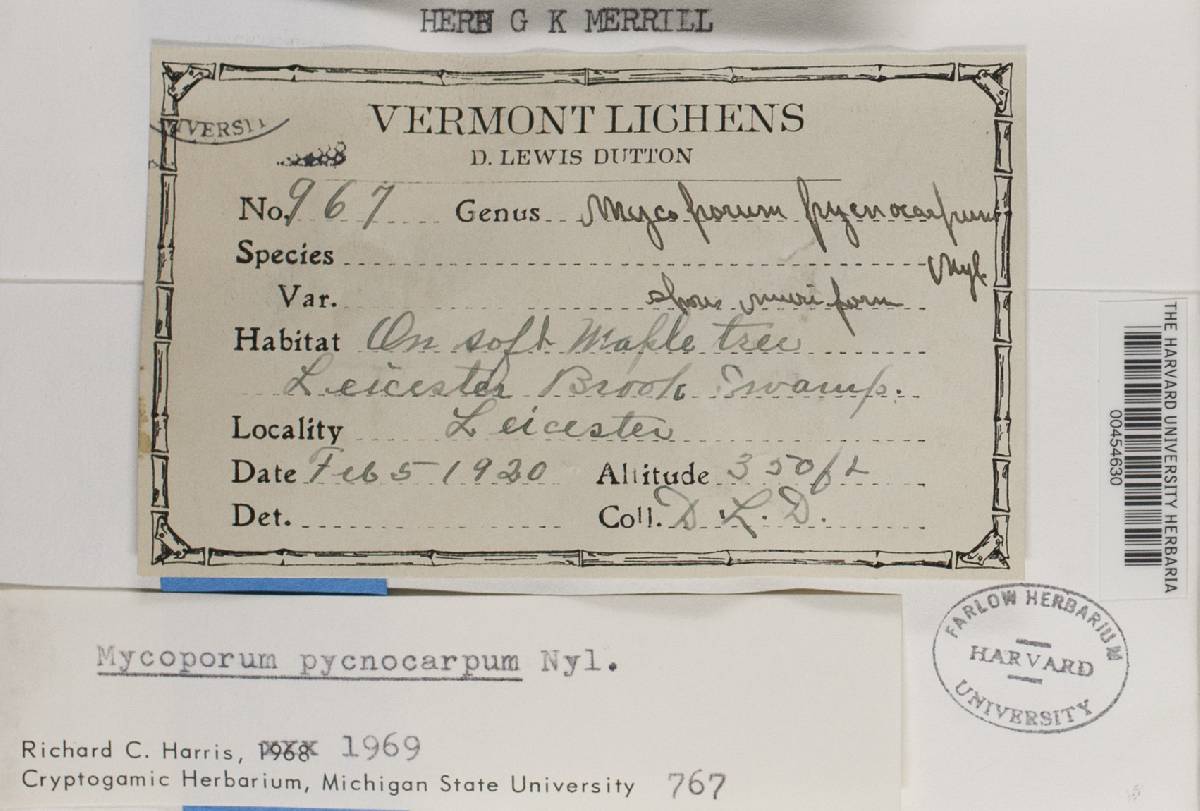 HERB G K MERRILL
VERMONT LICHENS
D. LEWIS DUTTON
No. 967 Genus Mycoporum pycnocarpum
Species Nyl.
Var. spores muriform
Habitat On soft Maple tree
Leicester Brook Swamp.
Locality Leicester
Date Feb 5 1920 Altitude 350 ft
Det. Coll. D. L. D.
THE HARVARD UNIVERSITY HERBARIA
00454630
FARLOW HERBARIUM
HARVARD
UNIVERSITY
Mycoporum pycnocarpum Nyl.
Richard C. Harris, 1968 1969
Cryptogamic Herbarium, Michigan State University 767